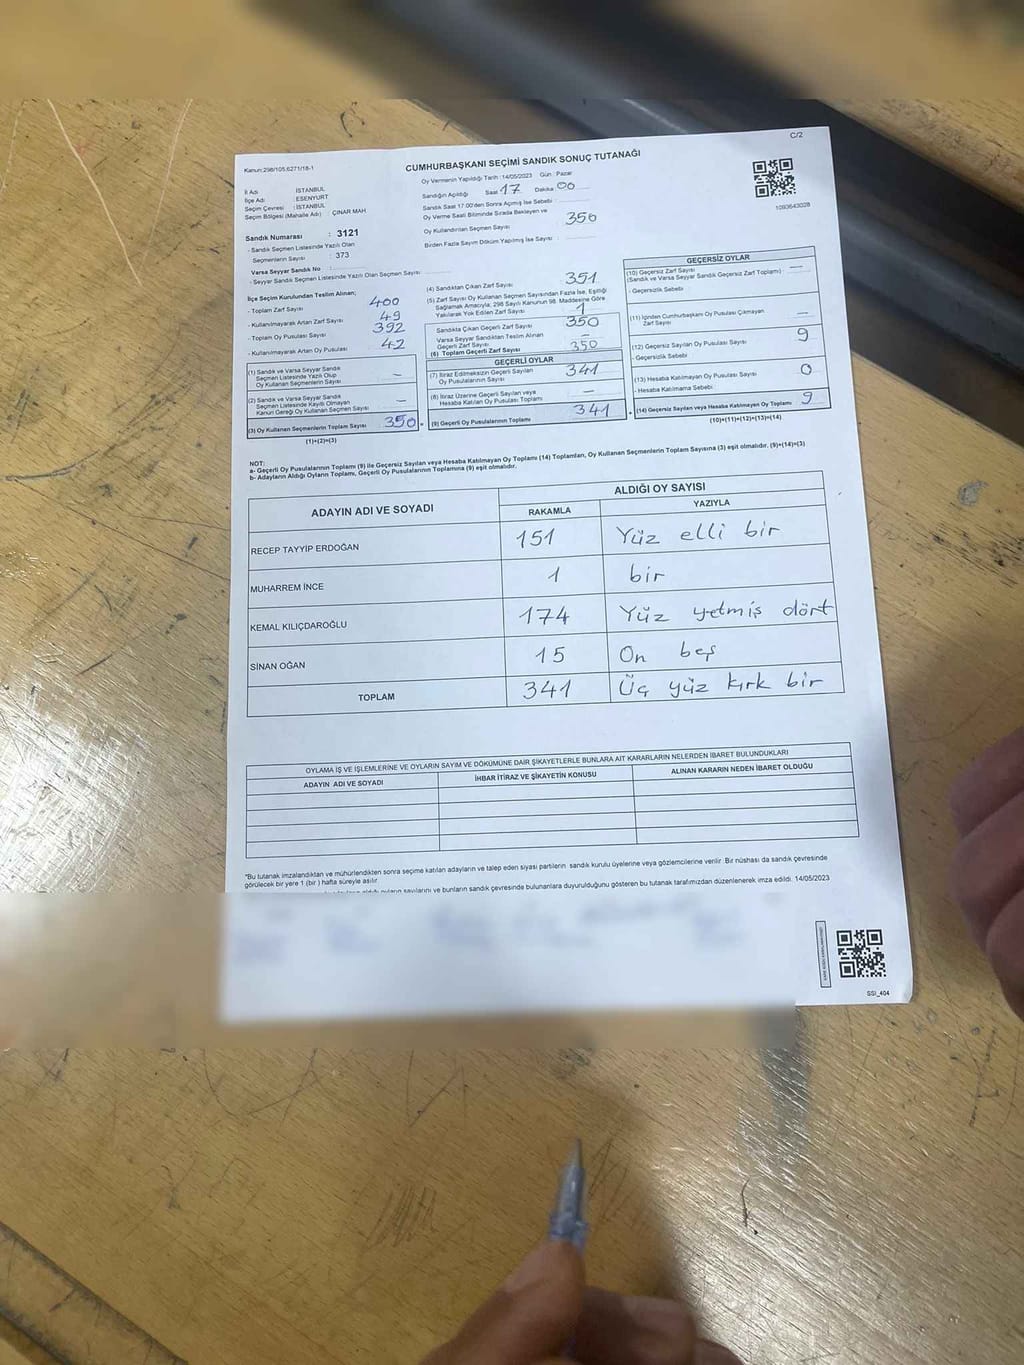 C/2
Kanun:298/105.6271/18-1
CUMHURBAŞKANI SEÇİMİ SANDIK SONUÇ TUTANAĞI
Oy Vermenin Yapıldığı Tarih : 14/05/2023 Gün : Pazar
İl Adı : İSTANBUL
İlçe Adı : ESENYURT
Seçim Çevresi : İSTANBUL
Seçim Bölgesi (Mahalle Adı) : ÇINAR MAH
Sandığın Açıldığı Saat 17 Dakika 00
Sandık Saat 17:00'den Sonra Açılmış İse Sebebi :
Oy Verme Saati Bitiminde Sırada Bekleyen ve
Oy Kullandırılan Seçmen Sayısı 350
Birden Fazla Sayım Döküm Yapılmış İse Sayısı :
1093643028
Sandık Numarası : 3121
- Sandık Seçmen Listesinde Yazılı Olan
Seçmenlerin Sayısı : 373
Varsa Seyyar Sandık No :
- Seyyar Sandık Seçmen Listesinde Yazılı Olan Seçmen Sayısı
İlçe Seçim Kurulundan Teslim Alınan;
- Toplam Zarf Sayısı 400
- Kullanılmayarak Artan Zarf Sayısı 49
- Toplam Oy Pusulası Sayısı 392
- Kullanılmayarak Artan Oy Pusulası 42
(1) Sandık ve Varsa Seyyar Sandık
Seçmen Listesinde Yazılı Olup
Oy Kullanan Seçmenlerin Sayısı –
(2) Sandık ve Varsa Seyyar Sandık
Seçmen Listesinde Kayıtlı Olmayan
Kanun Gereği Oy Kullanan Seçmen Sayısı –
(3) Oy Kullanan Seçmenlerin Toplam Sayısı 350
(1)+(2)=(3)
(4) Sandıktan Çıkan Zarf Sayısı 351
(5) Zarf Sayısı Oy Kullanan Seçmen Sayısından Fazla İse, Eşitliği
Sağlamak Amacıyla; 298 Sayılı Kanunun 98. Maddesine Göre
Yakılarak Yok Edilen Zarf Sayısı 1
Sandıkta Çıkan Geçerli Zarf Sayısı 350
Varsa Seyyar Sandıktan Teslim Alınan
Geçerli Zarf Sayısı –
(6) Toplam Geçerli Zarf Sayısı 350
GEÇERLİ OYLAR
(7) İtiraz Edilmeksizin Geçerli Sayılan
Oy Pusulalarının Sayısı 341
(8) İtiraz Üzerine Geçerli Sayılan veya
Hesaba Katılan Oy Pusulası Toplamı –
(9) Geçerli Oy Pusulalarının Toplamı 341
GEÇERSİZ OYLAR
(10) Geçersiz Zarf Sayısı –
(Sandık ve Varsa Seyyar Sandık Geçersiz Zarf Toplamı)
- Geçersizlik Sebebi
(11) İçinden Cumhurbaşkanı Oy Pusulası Çıkmayan
Zarf Sayısı –
(12) Geçersiz Sayılan Oy Pusulası Sayısı 9
- Geçersizlik Sebebi
(13) Hesaba Katılmayan Oy Pusulası Sayısı 0
- Hesaba Katılmama Sebebi
(14) Geçersiz Sayılan veya Hesaba Katılmayan Oy Toplamı 9
(10)+(11)+(12)+(13)=(14)
NOT:
a- Geçerli Oy Pusulalarının Toplamı (9) ile Geçersiz Sayılan veya Hesaba Katılmayan Oy Toplamı (14) Toplamları, Oy Kullanan Seçmenlerin Toplam Sayısına (3) eşit olmalıdır. (9)+(14)=(3)
b- Adayların Aldığı Oyların Toplamı, Geçerli Oy Pusulalarının Toplamına (9) eşit olmalıdır.
ADAYIN ADI VE SOYADI ALDIĞI OY SAYISI
RAKAMLA YAZIYLA
RECEP TAYYİP ERDOĞAN 151 Yüz elli bir
MUHARREM İNCE 1 bir
KEMAL KILIÇDAROĞLU 174 Yüz yetmiş dört
SİNAN OĞAN 15 On beş
TOPLAM 341 Üç yüz kırk bir
OYLAMA İŞ VE İŞLEMLERİNE VE OYLARIN SAYIM VE DÖKÜMÜNE DAİR ŞİKAYETLERLE BUNLARA AİT KARARLARIN NELERDEN İBARET BULUNDUKLARI
ADAYIN ADI VE SOYADI İHBAR İTİRAZ VE ŞİKAYETİN KONUSU ALINAN KARARIN NEDEN İBARET OLDUĞU
*Bu tutanak imzalandıktan ve mühürlendikten sonra seçime katılan adayların ve talep eden siyasi partilerin sandık kurulu üyelerine veya gözlemcilerine verilir. Bir nüshası da sandık çevresinde
görülecek bir yere 1 (bir ) hafta süreyle asılır.
aldığı oyların sayılarını ve bunların sandık çevresinde bulunanlara duyurulduğunu gösteren bu tutanak tarafımızdan düzenlenerek imza edildi. 14/05/2023
SSI_404